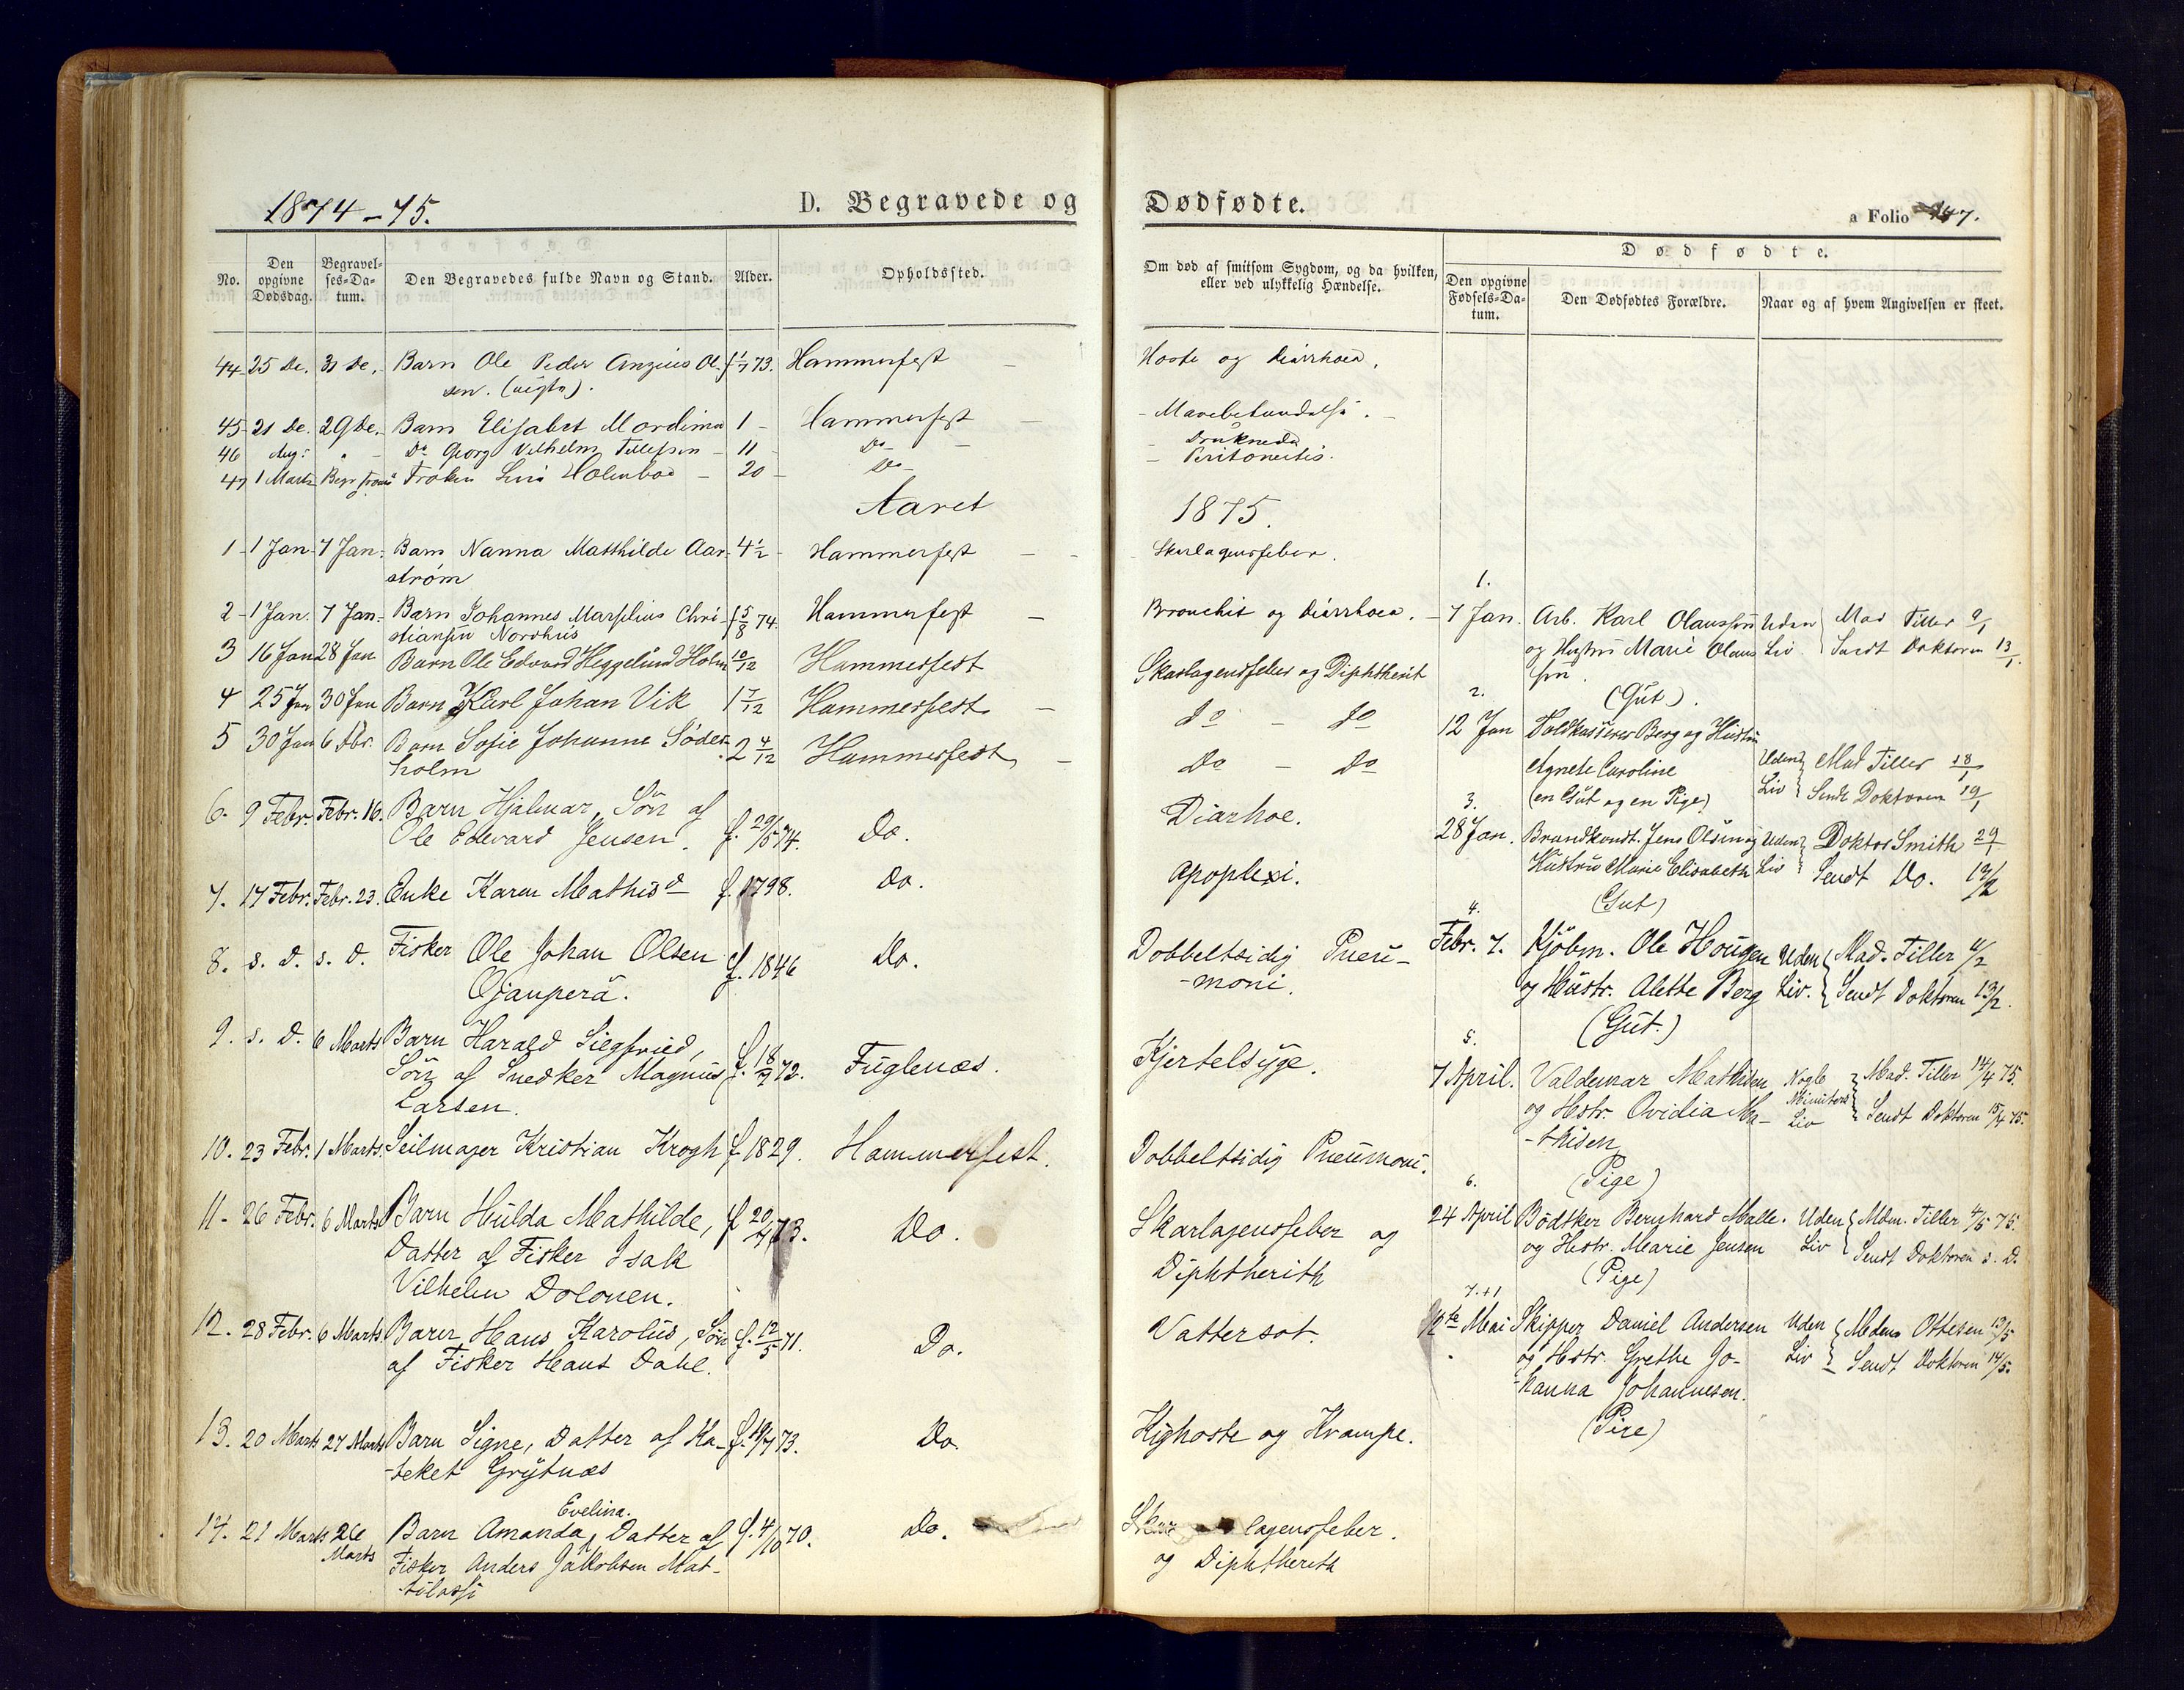 1874-75.
D. Begravede og
Dødfødte.
a Folio 147.
No.
Den opgivne Dødsdag.
Begravelses-Datum.
Den Begravedes fulde Navn og Stand.
Alder.
Opholdssted.
Om død af smitsom Sygdom, og da hvilken, eller ved ulykkelig Hændelse.
Dødfødte.
Den opgivne Fødsels-Datum.
Den Dødfødtes Forældre.
Naar og af hvem Angivelsen er skeet.
44 25 De. 31 De. Barn Ole Peder Ol- f 1/7 73. Hammerfest
sen.
Hoste og Diarrhoea.
45 21 De. 29 De. Barn Elisabet 1 Hammerfest
46 Aug. " Do Georg Vilhelm Tillefsen 11 Do
Druknede
47 1 Marts Frøken Holmboe 20 Do
Peritonitis.
Aaret
1875.
1 1 Jan. 7 Jan. Barn Nanna Matthilde Aar- 4 1/2 Hammerfest
strøm
Skarlagensfeber.
2 1 Jan. 7 Jan. Barn Johannes Marselius Chri- f 5/8 74 Hammerfest
stiansen Nordhus
Bronchit og Diarrhoea.
3 16 Jan 28 Jan Barn Ole Edvard Heggelund Holm 10/12 Hammerfest
Skarlagensfeber og Diphtherit
4 25 Jan 30 Jan Barn Karl Johan Vik 1 7/12 Hammerfest
do - do
5 30 Jan 6 Fbr. Barn Sofie Johanne Søder- 2 4/12 Hammerfest
holm
Do - Do
6. 9 Febr. Febr. 16. Barn Hjalmar, Søn af
Ole Edevard Jensen. f. 29/5 74. Do.
Diarhoe.
7. 17 Febr. Febr. 23. Enke Karen Mathisd f. 1798. Do.
Apoplexi.
8. s. D. s. D. Fisker Ole Johan Olsen f. 1846 Do.
Ojanperä.
Dobbeltsidig Pneu-
-moni.
9. s. D. 6 Marts Barn Harald Siegfried,
Søn af Snedker Magnus f. 18/7 72. Fuglenæs.
Larsen.
Kjertelsyge.
10. 23 Febr. 1 Marts. Seilmager Kristian Krogh f. 1829. Hammerfest.
Dobbeltsidig Pneumoni.
11. 26 Febr. 6 Marts Barn Hulda Mathilde, f 20/7 73. Do.
Datter af Fisker Isak
Vilhelm Dolonen.
Skarlagensfeber og
Diphtherith
12. 28 Febr. 6 Marts. Barn Hans Karolus, Søn f. 12/5 71. Do.
af Fisker Hans Dahl.
Vattersot.
13. 20 Marts 27 Marts Barn Signe, Datter af Ka- f. 19/7 73. Do.
-teket Grytnæs
Kighoste og Krampe.
14. 21 Marts 26 Marts Evelina.
Barn Amanda, Datter af f. 4/10 70. Do.
Fisker Anders Jakobsen Mat-
-tilassi
Skarlagensfeber.
og Diphtherith
1.
7 Jan. Arb. Karl Olaussen Uden Mad Tiller 9/1
og Hustru Marie Olaus Liv. Sendt Doktoren 13/1.
sen.
(Gut).
2.
12 Jan Toldkasserer Berg og Hustru
Agnete Caroline Uden Mad Tiller 18/1
(en Gut og en Pige) Liv Sendt Doktoren 19/1
3.
28 Jan. Brandkonst. Jens Olsen og Uden Doktor Smith 29/1
Hustru Marie Elisabeth Liv Sendt Do. 19/2
(Gut)
4.
Febr. 7. Kjøbm. Ole Hougen Uden Mad. Tiller
og Hustr. Alette Berg Liv. Sendt Doktoren 13/2.
(Gut.)
5.
7 April. Valdemar Mathisen Nogle Mad. Tiller 14/4 75.
og Hstr. Ovidia Ma- Minuters Liv Sendt Doktoren 15/4 75.
-thisen
(Pige)
6.
24 April Bødtker Bernhard Malle. Uden Mdm. Tiller 4/5 75.
og Hstr. Marie Jensen Liv Sendt Doktoren s. D.
(Pige)
7.
12te Mai Skipper Daniel Andersen Uden Mdme Ottesen 13/5
og Hstr. Grethe Jo- Liv Sendt Doktoren 14/5.
-hanna Johannesen.
(Pige)